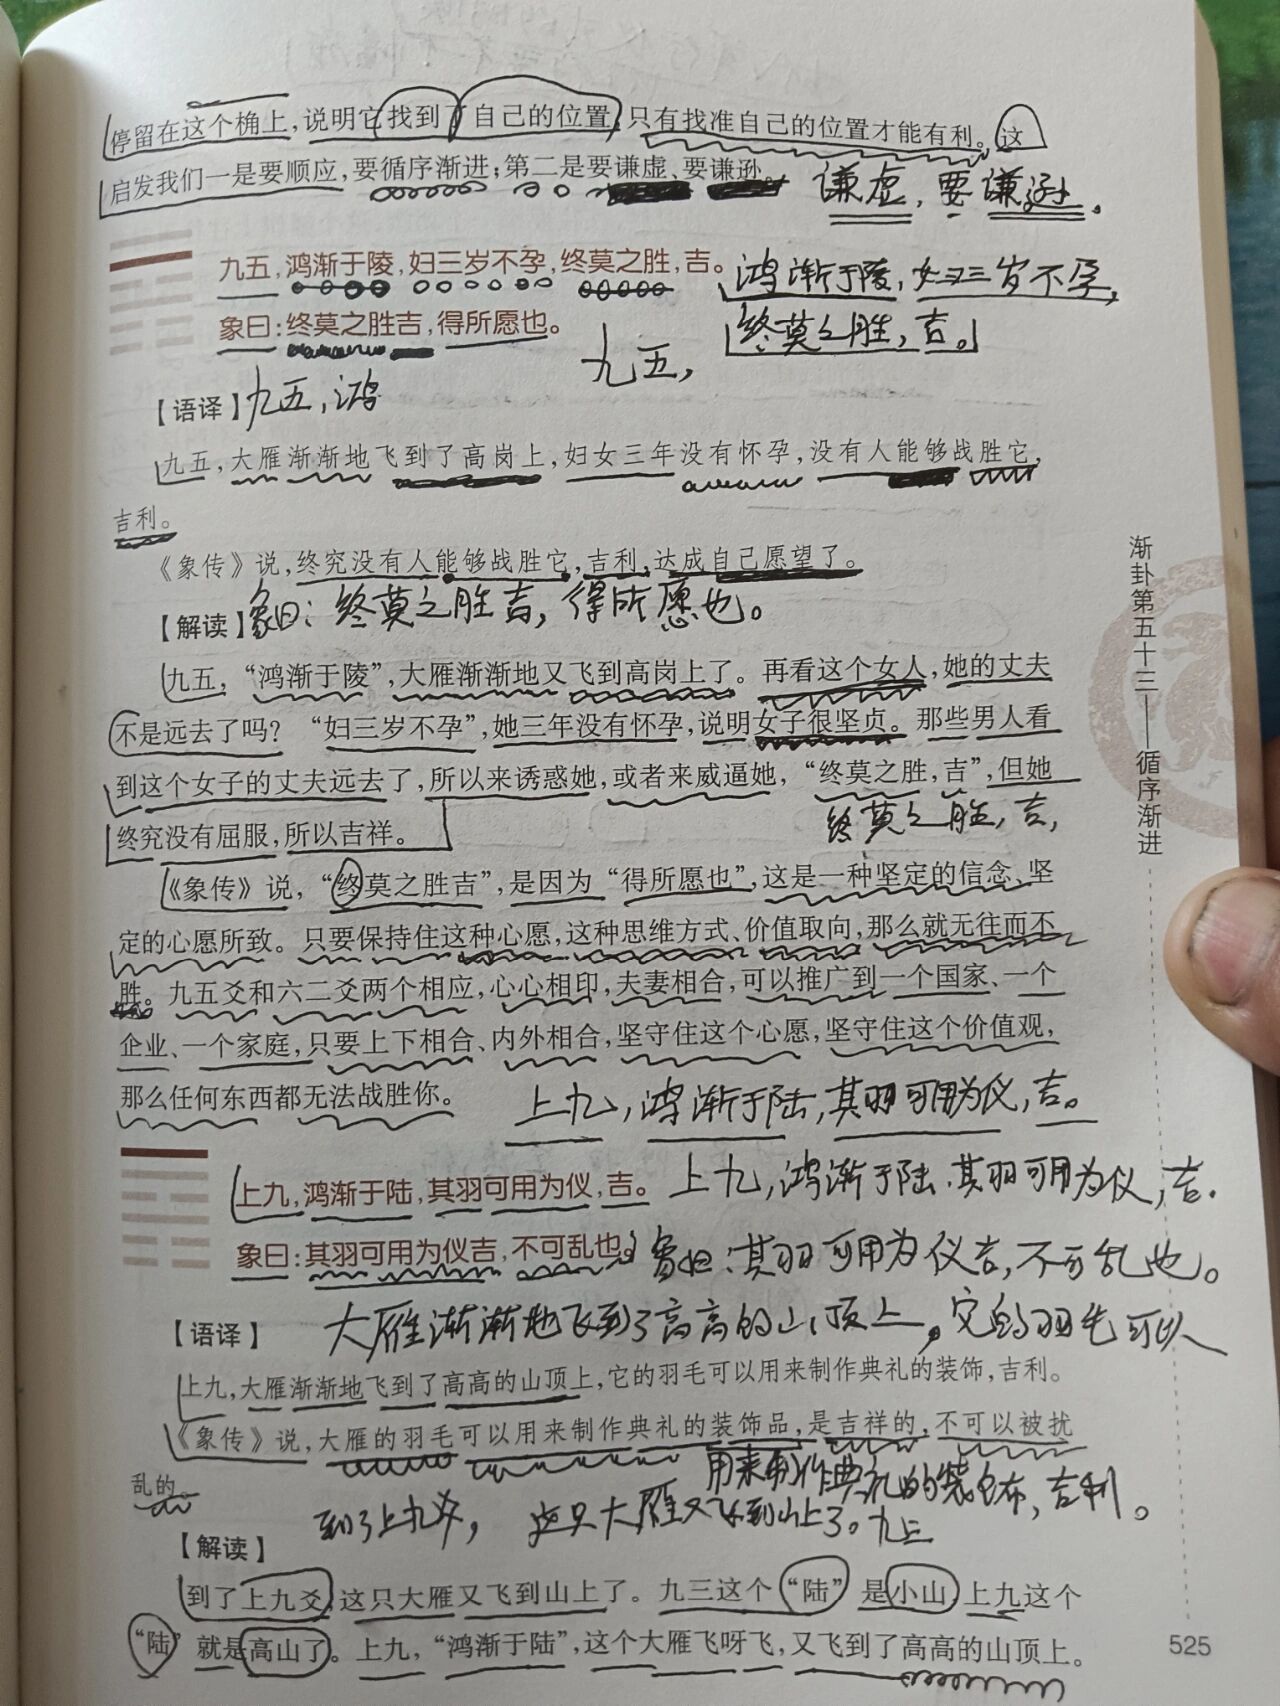 停留在这个桷上，说明它找到了自己的位置，只有找准自己的位置才能有利。这
启发我们一是要顺应，要循序渐进；第二是要谦虚、要谦逊。
谦虚，要谦逊。
九五，鸿渐于陵，妇三岁不孕，终莫之胜，吉。
鸿渐于陵，妇三岁不孕，
象曰：终莫之胜吉，得所愿也。
终莫之胜，吉。
九五，
【语译】
九五，鸿
九五，大雁渐渐地飞到了高岗上，妇女三年没有怀孕，没有人能够战胜它，
吉利。
《象传》说，终究没有人能够战胜它，吉利，达成自己愿望了。
【解读】
象曰：终莫之胜吉，得所愿也。
九五，“鸿渐于陵”，大雁渐渐地又飞到高岗上了。再看这个女人，她的丈夫
不是远去了吗？“妇三岁不孕”，她三年没有怀孕，说明女子很坚贞。那些男人看
到这个女子的丈夫远去了，所以来诱惑她，或者来威逼她，“终莫之胜，吉”，但她
终究没有屈服，所以吉祥。
终莫之胜，吉，
《象传》说，“终莫之胜吉”，是因为“得所愿也”，这是一种坚定的信念、坚
定的心愿所致。只要保持住这种心愿，这种思维方式、价值取向，那么就无往而不
胜。九五爻和六二爻两个相应，心心相印，夫妻相合，可以推广到一个国家、一个
企业、一个家庭，只要上下相合、内外相合，坚守住这个心愿，坚守住这个价值观，
那么任何东西都无法战胜你。
上九，鸿渐于陆，其羽可用为仪，吉。
上九，鸿渐于陆，其羽可用为仪，吉。
上九，鸿渐于陆，其羽可用为仪，吉。
象曰：其羽可用为仪吉，不可乱也。
象曰：其羽可用为仪吉，不可乱也。
【语译】
大雁渐渐地飞到了高高的山顶上，它的羽毛可以
上九，大雁渐渐地飞到了高高的山顶上，它的羽毛可以用来制作典礼的装饰，吉利。
《象传》说，大雁的羽毛可以用来制作典礼的装饰品，是吉祥的，不可以被扰
乱的。
用来制作典礼的装饰，吉利。
到了上九爻，这只大雁又飞到山上了。九三
【解读】
到了上九爻，这只大雁又飞到山上了。九三这个“陆”是小山，上九这个
“陆”就是高山了。上九，“鸿渐于陆”，这个大雁飞呀飞，又飞到了高高的山顶上。
渐卦第五十三——循序渐进
525